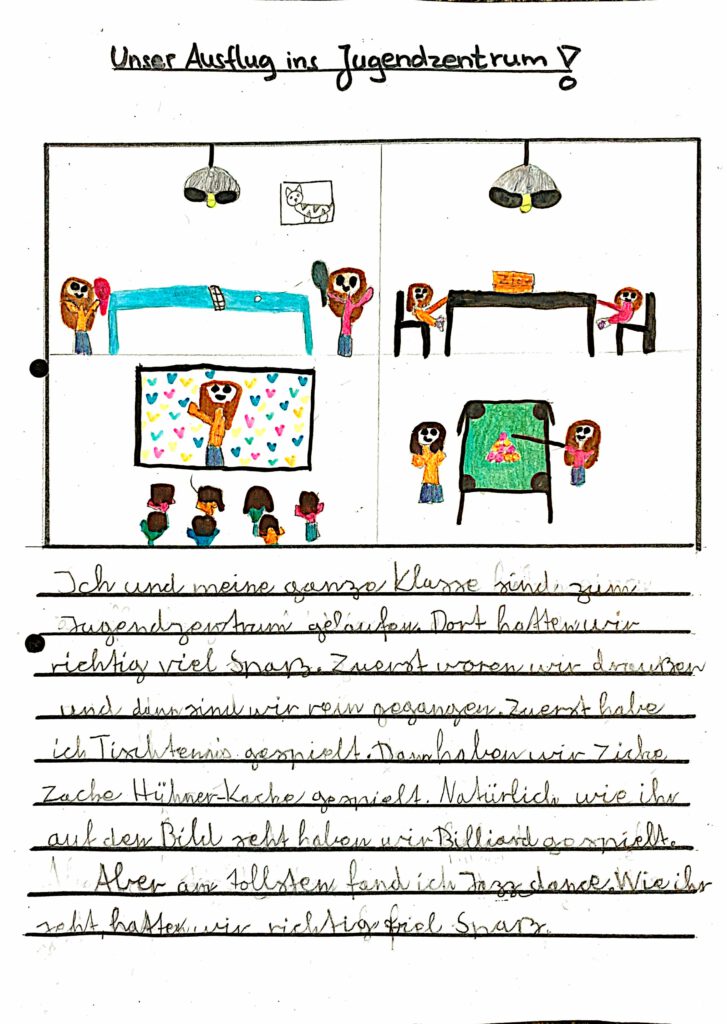 Unser Ausflug ins Jugendzentrum!
Zicke
Ich und meine ganze Klasse sind zum
Jugendzentrum gelaufen. Dort hatten wir
richtig viel Sparß. Zuerst waren wir draußen
und dann sind wir rein gegangen. Zuerst habe
ich Tischtennis gespielt. Dann haben wir Zicke
Zacke Hühner-Kacke gespielt. Natürlich wie ihr
auf den Bild seht haben wir Billiard gespielt.
Aber am tollsten fand ich Jazz dance. Wie ihr
seht hatten wir richtig fiel Sparß.